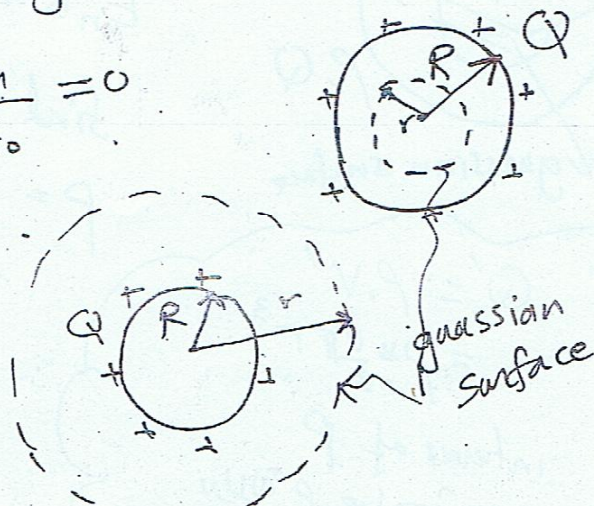 = 0
Q
R
r
Q
R
r
gaussian
surface